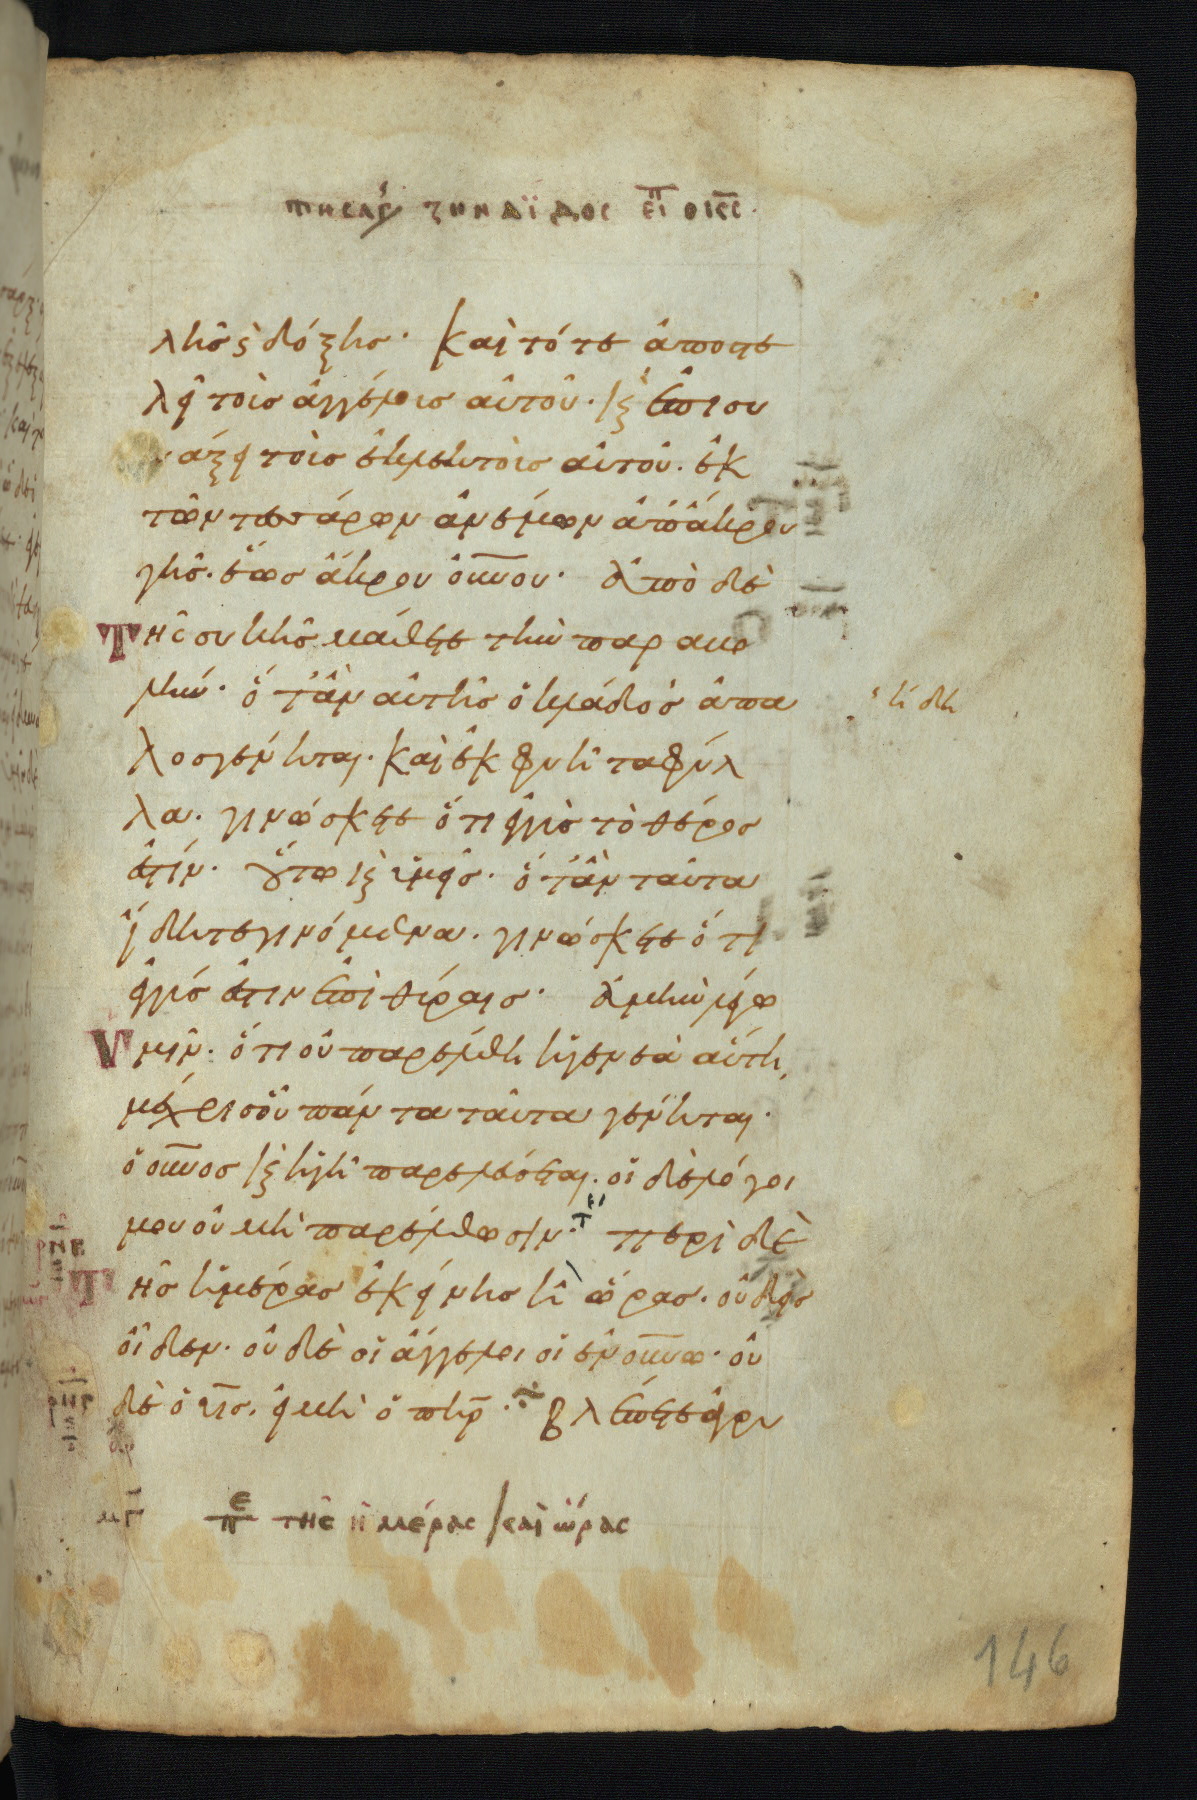 λῆς ϗ δόξης· καὶ τότε ἀποστε
λεῖ τοὺς ἀγγέλους αὐτοῦ· καὶ ἐπισυ
νάξει τοὺς ἐκλεκτοὺς αὐτοῦ. ἐκ
τῶν τεσσάρων ἀνέμων ἀπὸ ἄκρου
γῆς. ἕως ἄκρου οὐνου· Ἀπὸ δὲ
τῆς συκῆς μάθετε τὴν παραβο
λήν· ὅταν αὐτῆς ὁ κλάδος ἁπα
ἤδη
λὸς γένηται. καὶ ἐκφυῆ τὰ φύλ
λα. γινώσκετε ὅτι ἐγγὺς τὸ θέρος
ἐστίν· οὕτω καὶ ὑμεῖς· ὅταν ταῦτα
ἴδητε γινόμενα. γινώσκετε ὅτι
ἐγγύς ἐστιν ἐπὶ θύραις· Ἀμὴν λέγω
ὑμῖν. ὅτι οὐ παρέλθη ἡ γενεὰ αὕτη,
μέχρις οὗ πάντα ταῦτα γένηται·
ὁ οὐνος καὶ ἡ γῆ παρελεύσεται. οἱ δὲ λόγοι
μου οὐ μὴ παρέλθωσιν· περὶ δὲ
τῆς ἡμέρας ἐκείνης ἢ ὥρας. οὐδεὶς
οἶδεν· οὐδὲ οἱ ἄγγελοι οἱ ἐν οὐνω· οὐ
δὲ ὁ υἱς. εἰ μὴ ὁ πηρ· βλέπετε ἀγρυ
μγ πε τῆς ἡμέρας καὶ ὥρας
146